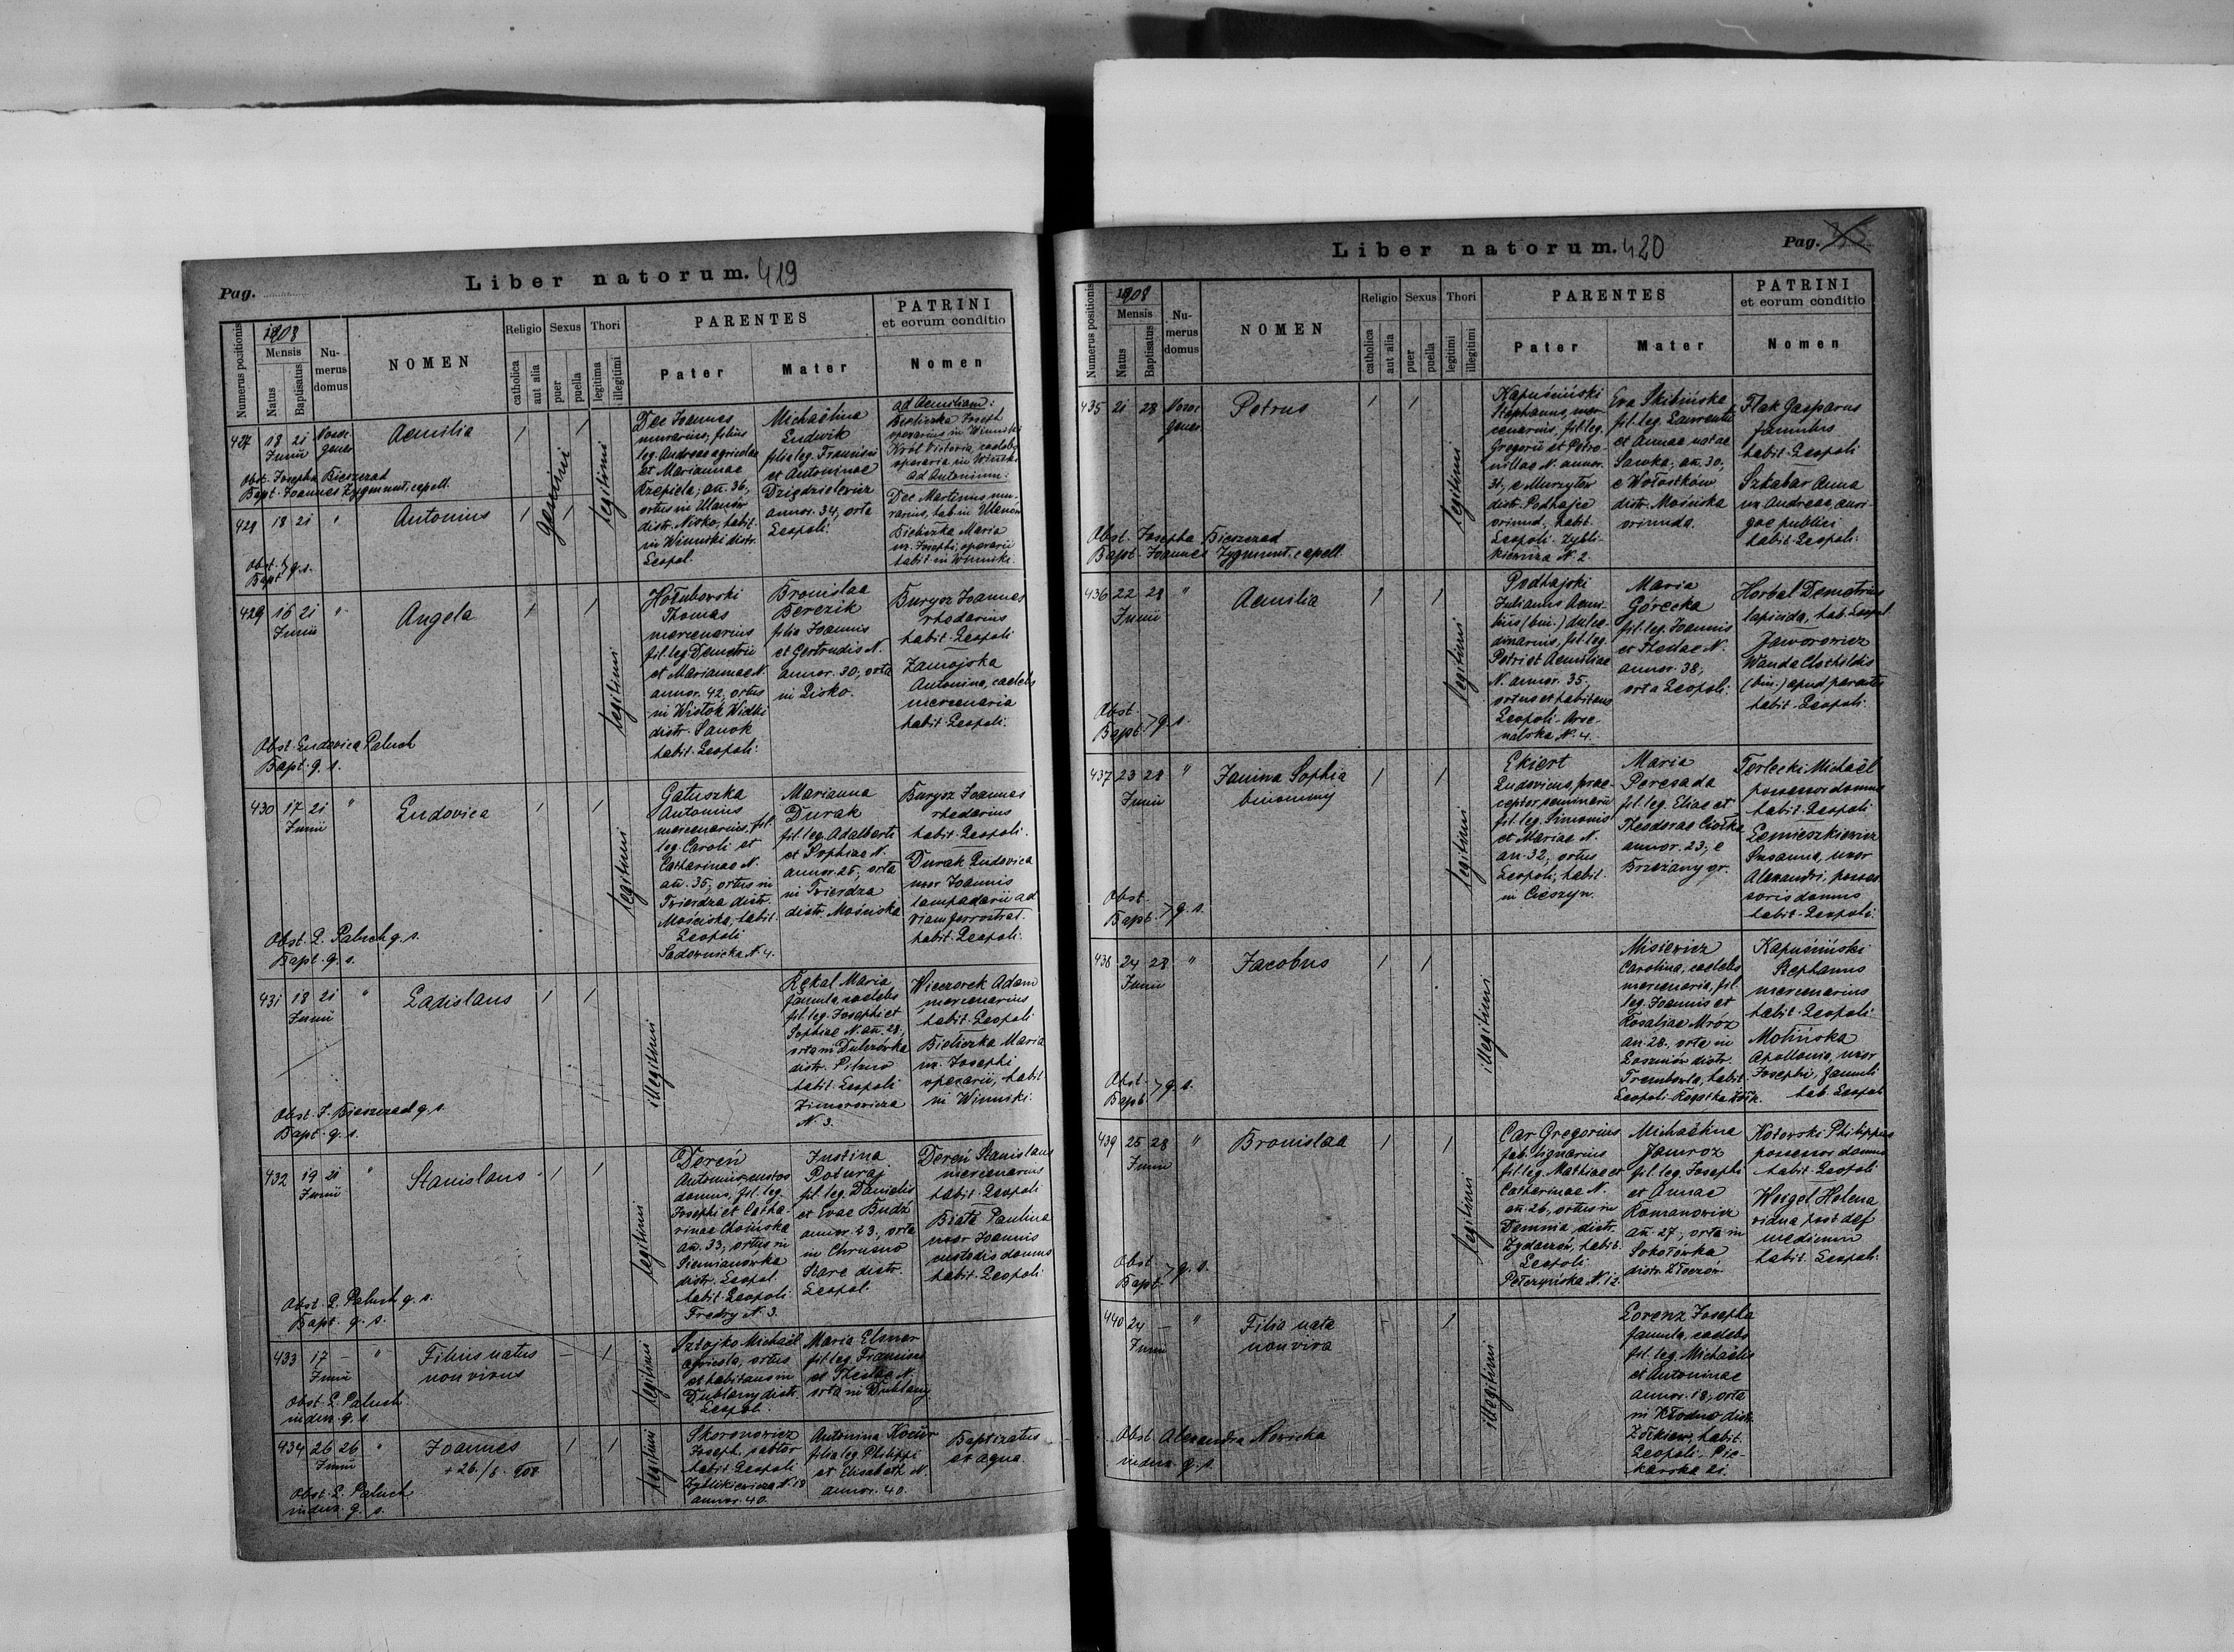 Pag.
Liber natorum. 419
Numerus positionis
1908
Mensis
Natus
Baptisatus
Numerus domus
NOMEN
Religio
catholica
aut alia
Sexus
puer
puella
Thori
legitima
illegitimi
PARENTES
Pater
Mater
PATRINI
et eorum conditio
Nomen
427 18 21
Junii
Nosoc.
gener
Aemilia
1 1
gemini
legitimi
Obst. Josepha Bieszczad
Bapt. Joannes Zygmunt, capell.
Dec Joannes
murarius, filius
leg. Andreae agricolae
et Mariannae
Rzepiela, an. 36,
ortus in Ulanów
distr. Nisko, habit.
in Winniki distr.
Leopol.
Michaëlina
Ludwik
filia leg. Francisci
et Antoninae
Dziędzielewicz
annor. 34, orta
Leopoli.
ad Aemiliam:
Bieliczka Joseph
operarius in Winniki
Król Victoria, caelebs
operaria in Winniki
ad Antonium:
Dec Martinus mu-
rarius, hab. in Ulanów
Bieliczka Maria
ux. Josephi, operarii
habit. in Winniki.
18 21 "
Antonius
1 1
Obst.
Bapt. q. s.
429 16 21 "
Junii
Angela
1 1
legitimi
Obst. Ludovica Paluch
Bapt. q. s.
Hołubowski
Thomas
mercenarius
fil. leg. Demetrii
et Mariannae N.
annor. 42, ortus
in Wisłok Wielki
distr. Sanok
habit. Leopoli.
Bronislaa
Berezik
filia Joannis
et Gertrudis N.
annor. 30, orta
in Lisko.
Burysz Joannes
rhedarius
habit. Leopoli
Zamojska
Antonina, caelebs
mercenaria
habit. Leopoli.
430 17 21 "
Junii
Ludovica
1 1
legitimi
Obst. L. Paluch q. s.
Bapt. q. s.
Gałuszka
Antonius
mercenarius, fil.
leg. Caroli et
Catharinae N.
an. 35, ortus in
Twierdza distr.
Mościska, habit.
Leopoli
Sadownicka N. 4.
Marianna
Durak
fil. leg. Adalberti
et Sophiae N.
annor. 25, orta
in Twierdza
distr. Mościska
Burysz Joannes
rhedarius
habit. Leopoli.
Durak Ludovica
uxor Joannis
lampadarii ad
viam ferrostrat.
habit. Leopoli.
431 18 21 "
Junii
Ladislaus
1 1
illegitimi
Obst. J. Bieszczad q. s.
Bapt. q. s.
Rękal Maria
famula, caelebs
fil. leg. Josephi et
Sophiae N. an. 28,
orta in Dulczówka
distr. Pilzno
habit. Leopoli
Zimorowicza
N. 3.
Wieczorek Adam
mercenarius
habit. Leopoli
Bieliczka Maria
ux. Josephi
operarii, habit.
in Winniki.
432 19 21 "
Junii
Stanislaus
1 1
legitimi
Obst. L. Paluch q. s.
Bapt. q. s.
Dereń
Antonius, custos
domus, fil. leg.
Josephi et Catha-
rinae Choińska
an. 33, ortus in
Siemianówka
distr. Leopol.
habit. Leopoli
Fredry N. 3.
Justina
Poturaj
fil. leg. Danielis
et Evae Budz
annor. 23, orta
in Chrusno
Stare distr.
Leopol.
Dereń Stanislaus
mercenarius
habit. Leopoli
Biała Paulina
uxor Joannis
custodis domus
habit. Leopoli
433 17 - "
Junii
Filius natus
non vivus
- 1
legitimi
Obst. L. Paluch
index q. s.
Sztojko Michaël
agricola, ortus
et habitans in
Dublany distr.
Leopol.
Maria Elsner
fil. leg. Francisci
et Theclae N.
orta in Dublany
434 26 26 "
Junii
Joannes
+ 26./6. 908
1 1
legitimi
Obst. L. Paluch
index q. s.
Skoronowicz
Joseph, sartor
habit. Leopoli
Zyblikiewicza N. 18
annor. 40.
Antonina Kocur
filia leg. Philippi
et Elisabeth N.
annor. 40.
Baptizatus
ex aqua.
Liber natorum. 420
Pag.
Numerus positionis
1908
Mensis
Natus
Baptisatus
Numerus domus
NOMEN
Religio
catholica
aut alia
Sexus
puer
puella
Thori
legitimi
illegitimi
PARENTES
Pater
Mater
PATRINI
et eorum conditio
Nomen
435 21 28
Nosoc.
gener
Petrus
1 1
legitimi
Obst. Josepha Bieszczad
Bapt. Joannes Zygmunt, capell.
Kapuściński
Stephanus, mer-
cenarius, fil. leg.
Gregorii et Petro-
nillae N. annor.
31, e Murzyłów
distr. Podhajce
oriund, habit.
Leopoli Zybli-
kiewicza N. 2.
Eva Skibińska
fil. leg. Laurentii
et Annae natae
Sawka, an. 30,
e Wołostków
distr. Mościska
oriunda.
Flak Gasparus
famulus
habit. Leopoli
Sztabar Anna
ux. Andreae, auri-
gae publici
habit. Leopoli.
436 22 28 "
Junii
Aemilia
1 1
legitimi
Obst.
Bapt. q. s.
Podhajski
Julianus Aemi-
lius (bin.) dulce-
dinarius, fil. leg.
Petri et Aemiliae
N. annor. 35,
ortus et habitans
Leopoli Arse-
nalska N. 4.
Maria
Górecka
fil. leg. Joannis
et Hedae N.
annor. 38,
orta Leopoli.
Horbal Demetrius
lapicida, hab. Leopol
Jaworowicz
Wanda Clothildis
(bin.) apud parentes
habit. Leopoli.
437 23 28 "
Junii
Janina Sophia
binominis
1 1
legitimi
Obst.
Bapt. q. s.
Ekiert
Ludovicus, prae-
ceptor seminarii
fil. leg. Simonis
et Mariae N.
an. 32, ortus
Leopoli, habit.
in Cieszyn.
Maria
Peresada
fil. leg. Eliae et
Theodorae Ciołka
annor. 23, e
Brzeżany or.
Terlecki Michaël
possessor domus
habit. Leopoli
Lemieszkiewicz
Susanna, uxor
Alexandri, posses-
soris domus
habit. Leopoli.
438 24 28 "
Junii
Jacobus
1 1
illegitimi
Obst.
Bapt. q. s.
Misiewicz
Carolina, caelebs
mercenaria, fil.
leg. Joannis et
Rosaliae Mróz
an. 28, orta in
Łoszniów distr.
Trembowla, habit.
Leopoli
Kapuściński
Stephanus
mercenarius
habit. Leopoli
Molińska
Apollonia, uxor
Josephi, famuli
hab. Leopol
439 25 28 "
Junii
Bronislaa
1 1
legitimi
Obst.
Bapt. q. s.
Car Gregorius
fab. lignarius
fil. leg. Mathiae et
Catharinae N.
an. 26, ortus in
Demnia distr.
Żydaczów, habit.
Leopoli
Pełczyńska N. 12.
Michaëlina
Jamroz
fil. leg. Josephi
et Annae
Romanowicz
an. 27, orta in
Sokołówka
distr. Złoczów
Kotowski Philippus
possessor domus
habit. Leopoli
Weigel Helena
vidua post def.
medicum
habit. Leopoli.
440 24 - "
Junii
Filia nata
non viva
- 1
illegitimi
Obst. Alexandra Nowicka
index q. s.
Lorenz Josepha
famula, caelebs
fil. leg. Michaëlis
et Antoninae
annor. 18, orta
in Kłodno distr.
Żółkiew, habit.
Leopoli, Pie-
karska 21.